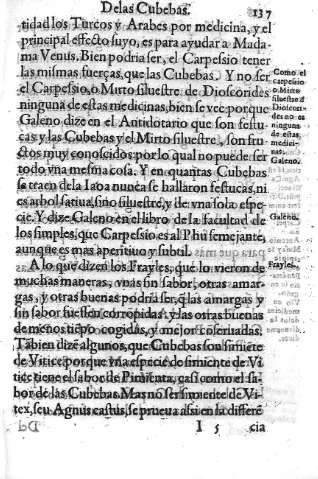 De las Cubebas. 137
tidad los Turcos y Arabes por medicina, y el
principal effecto suyo, es para ayudar a Mada-
ma Venus. Bien podria ser, el Carpessio tener
las mismas fuerças, que las Cubebas. Y no ser
el Carpessio, o Mirto siluestre de Dioscorides
ninguna de estas medicinas, bien se vee porque
Galeno dize en el Antidotario que son festu-
cas y las Cubebas y el Mirto siluestre, son fru-
ctos muy conoscidos: por lo qual no puede ser
todo vna mesma cosa. Y en quantas Cubebas
se traen de la Iaoa nunca se hallaron festucas, ni
es arbol satiua, sino siluestre, y de vna sola espe-
cie. Y dize Galeno en el libro de la facultad de
los simples, que Carpessio es al Phú semejante,
aunque es mas aperitiuo y subtil.
A lo que dizen los Frayles, que lo vieron de
muchas maneras, vnas sin sabor, otras amar-
gas, y otras buenas podria ser, q̃ las amargas y
sin sabor fuessen corrõpidas: y las otras buenas
de menos tiẽpo cogidas, y mejor cõseruadas.
Tãbien dizẽ algunos, que Cubebas sou simiẽte
de Vitice, porque vna especie de simiente de Vi
tice tiene el sabor de Pimienta, casi como el sa-
bor de las Cubebas. Mas no ser simiente de Vi-
tex, seu Agnus castus, se prueua assi en la differẽ
I 5 cia
Como el
carpessio
o Mirto
siluestre d̃
Dioscori-
des no es
ninguna
de estas
medici-
nas.
Galeno.
Galeno.
Frayles.